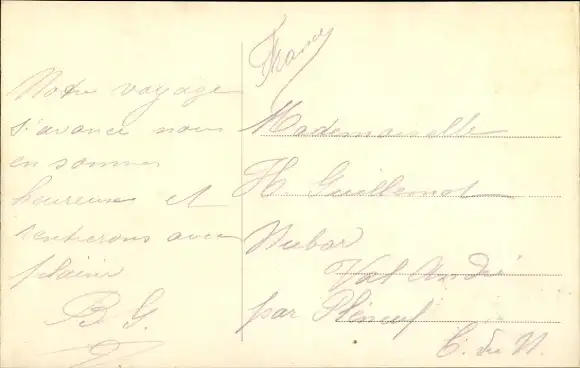 Notre voyage
s'avance nous
en sommes
heureux et
rentrerons avec
plaisir
B. G.
France
Mademoiselle
H. Guillemot
Val André
par Pléneuf
C. du N.